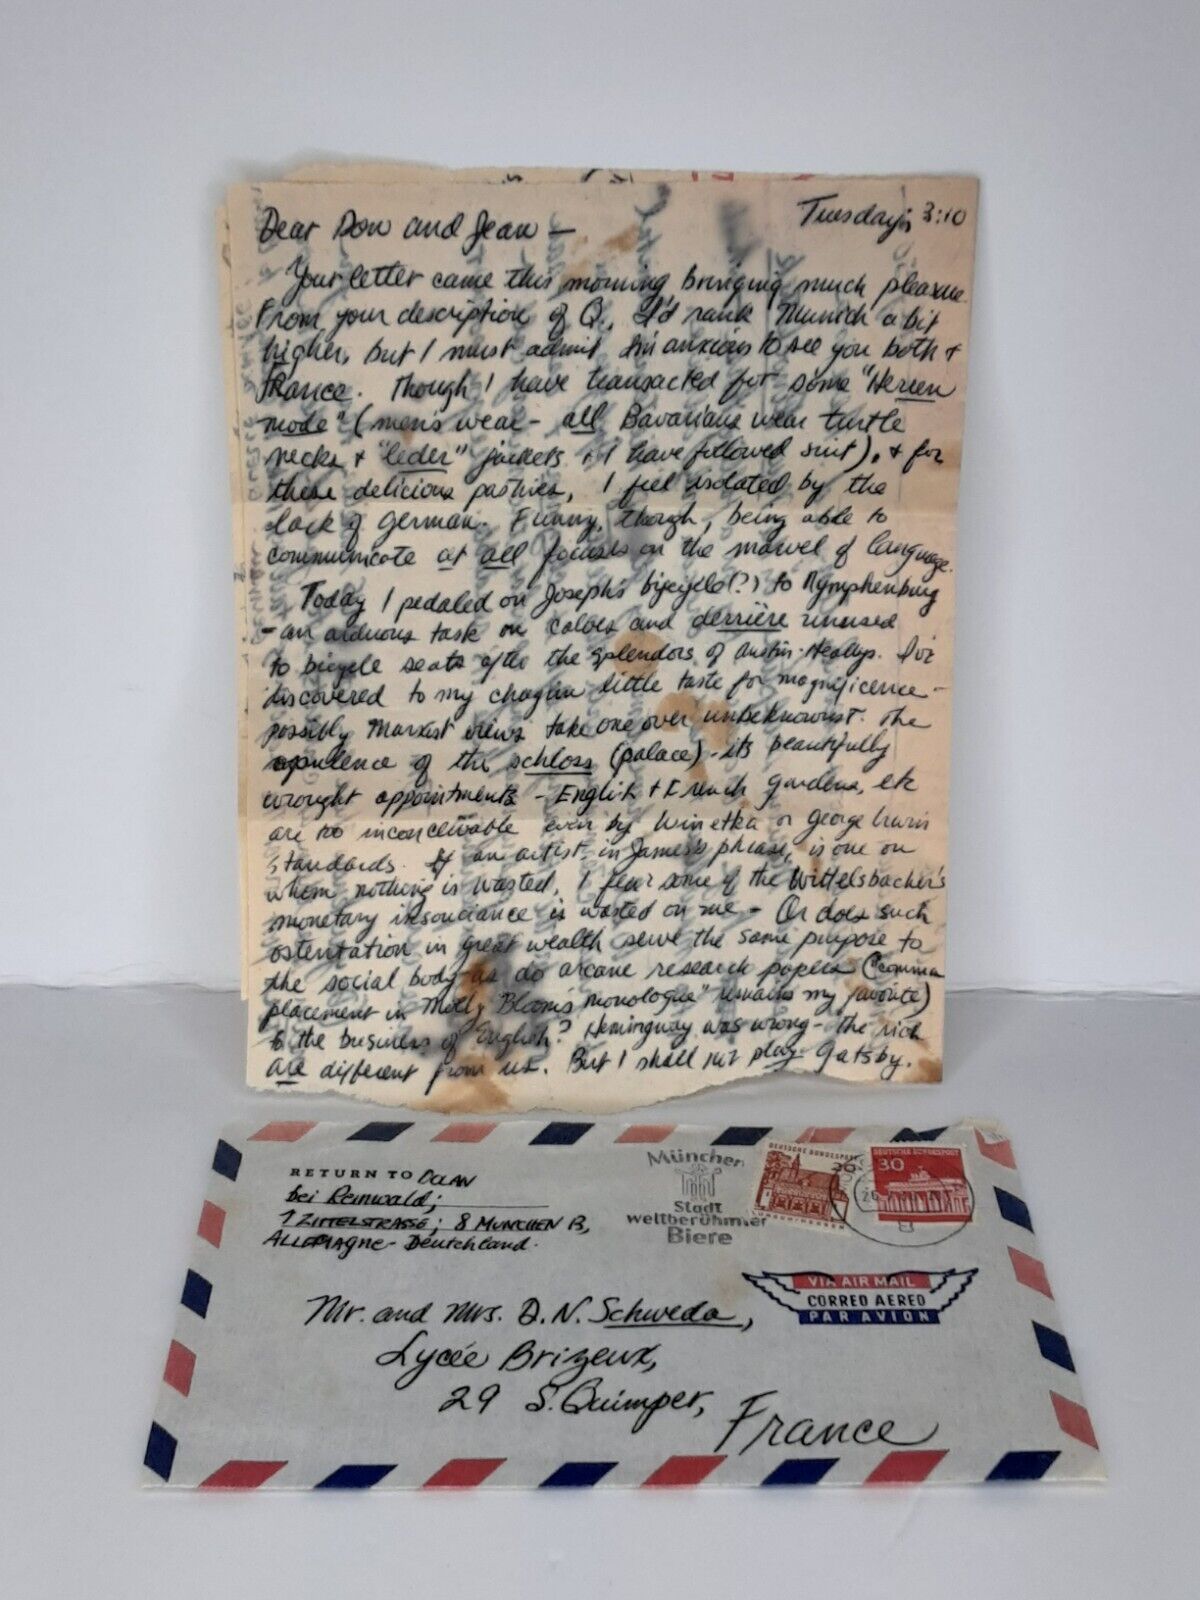 Tuesday, 3:10
Dear Don and Jean —
Your letter came this morning bringing much pleasure.
From your description of Q., I'd rank Munich a bit
higher, but I must admit I'm anxious to see you both +
France. Though I have transacted for some "Herren
mode" (men's wear - all Bavarians wear turtle
necks + "leder" jackets + I have followed suit), + for
these delicious pastries, I feel isolated by the
lack of German. Funny, though, being able to
communicate at all focuses on the marvel of language.
Today I pedaled on Joseph's bicycle(?) to Nymphenburg
- an arduous task on calves and derrière unused
to bicycle seats after the splendors of Austin-Healys. I've
discovered to my chagrin little taste for magnificence -
possibly Marxist views take one over unbeknownst. The
opulence of the schloss (palace) - its beautifully
wrought appointments - English + French gardens, etc
are too inconceivable even by Winetka or George
standards. If an artist, in James's phrase, is one on
whom nothing is wasted, I fear some of the Wittelsbacher's
monetary insouciance is wasted on me - Or does such
ostentation in great wealth serve the same purpose to
the social body as do arcane research papers ("comma
placement in Molly Bloom's monologue" remains my favorite)
to the business of English? Hemingway was wrong - the rich
are different from us. But I shall not play Gatsby.
RETURN TO DOLAN
bei Reinwald;
ZITTELSTRASSE; 8 MÜNCHEN 13,
ALLEMAGNE - Deutchland.
München
Stadt
weltberühmter
Biere
DEUTSCHE BUNDESPOST
20
LORSCH/HESSEN
DEUTSCHE BUNDESPOST
30
VIA AIR MAIL
CORREO AEREO
PAR AVION
Mr. and Mrs. D. N. Schweda,
Lycée Brizeux,
29 S. Quimper,
France